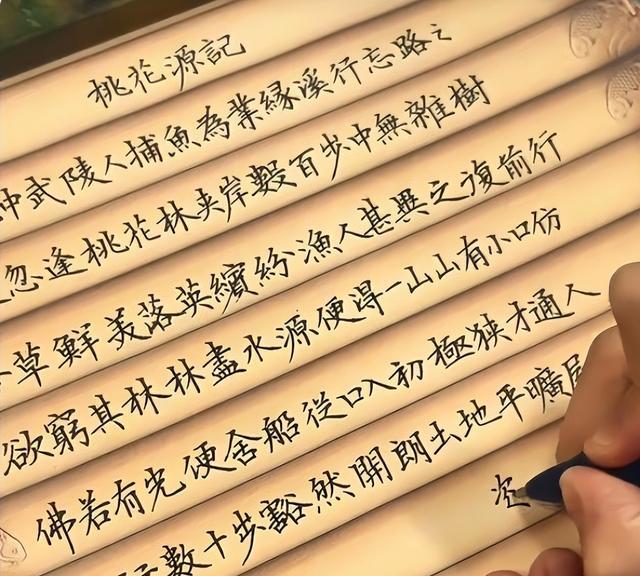 桃花源記
中武陵人捕魚為業縁溪行忘路之
忽逢桃花林夹岸數百步中無雜樹
草鮮美落英繽紛漁人甚異之復前行
欲窮其林林盡水源便得一山山有小口仿
佛若有光便舍船從口入初極狭才通人
數十步豁然開朗土地平曠屋